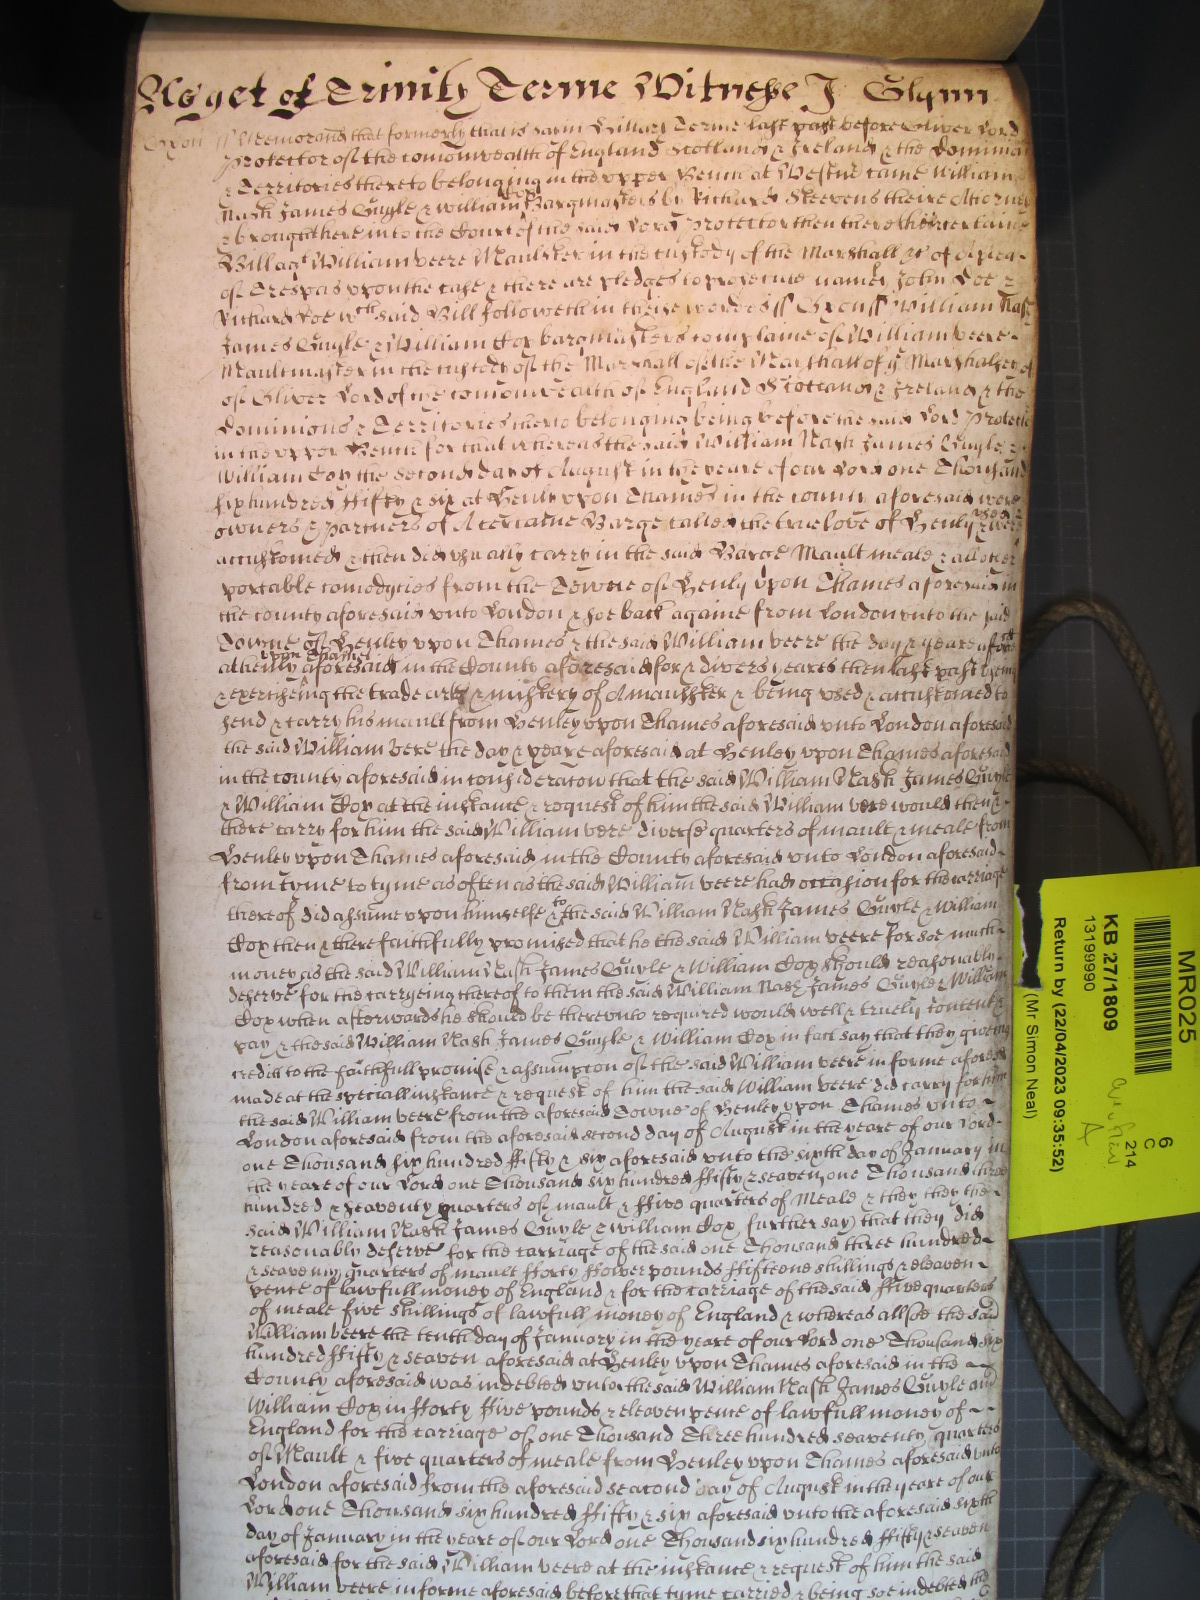 As yet of Trinity Terme Witnesse J Glynn
Oxon ss Memorand that formerly that is say in Hillary Terme last past before Oliver Lord
Protector of the comonwealth of England Scotland & Ireland & the Dominions
& Territories thereto belonging in the upper Bench at Westmr came William
Nash James Guyle & William Cox Bargmasters by Richard Steevens theire Attorney
& brought here into the Court of the said Lord Protector then there their certaine
Bill agt William Veere Maulster in the custody of the Marshall &c of a plea
of Trespas upon the case & there are pledges to prosecute namely John Doe &
Richard Roe wch said Bill followeth in theise words ss Oxon ss William Nash
James Guyle & William Cox bargmasters complaine of William Veere
Maultmaster in the custody of the Marshall of the Marshall of ye Marshalsey
of Oliver Lord of the comonwealth of England Scotland & Ireland & the
Dominions & Territories thereto belonging being before the said Lord Protector
in the upper Bench for that whereas the said William Nash James Guyle &
William Cox the second day of August in the yeare of our Lord one Thousand
six hundred ffifty & six at Henly upon Thames in the county aforesaid were
owners & partners of A certaine Barge called the true love of Henly & were used &
accustomed & then did usually carry in the said Barge Mault meale & all other
portable comodyties from the Towne of Henly upon Thames aforesaid in
the county aforesaid unto London & soe back againe from London unto the said
Towne of Henley upon Thames & the said William Veere the day & yeare aforesd
at henly upon Thames aforesaid in the County aforesaid for & divers yeares then last past using
& exerciseing the trade arte & mistery of A maulster & being used & accustomed to
send & carry his mault from Henley upon Thames aforesaid unto London aforesaid
the said William Vere the day & yeare aforesaid at Henley upon Thames aforesaid
in the county aforesaid in consideracon that the said William Nash James Guyle
& William Cox at the instance & request of him the said William Vere would then &
there carry for him the said William Vere diverse quarters of mault & meale from
Henley upon Thames aforesaid in the County aforesaid unto London aforesaid
from tyme to tyme as often as the said William Veere had occasion for the carriage
thereof did assume upon himselfe & to the said William Nash James Guyle & William
Cox then & there faithfully promised that he the said William Veere for soe much
money as the said William Nash James Guyle & William Cox should reasonably
deserve for the carryeing thereof to them the said William Nash James Guyle & William
Cox when afterwards he should be thereunto required would well & truely content &
pay & the said William Nash James Guyle & William Cox in fact say that they giveing
credit to the faithfull promise & assumption of the said William Veere in forme aforesd
made at the speciall instance & request of him the said William Veere did carry for him
the said William Veere from the aforesaid Towne of Henley upon Thames unto
London aforesaid from the aforesaid second day of August in the yeare of our Lord
one Thousand six hundred ffifty & six aforesaid unto the sixth day of January in
the yeare of our Lord one Thousand six hundred ffifty & seaven one Thousand three
hundred & seaventy quarters of mault & ffive quarters of Meale & they they the
said William Nash James Guyle & William Cox further say that they did
reasonably deserve for the carriage of the said one Thousand three hundred
& seaventy quarters of mault fforty ffower pounds ffifteene shillings & eleaven
pence of lawfull money of England & for the carriage of the said ffive quarters
of meale five shillings of lawfull money of England & whereas allsoe the said
William Veere the tenth day of January in the yeare of our Lord one Thousand six
hundred ffifty & seaven aforesaid at Henley upon Thames aforesaid in the
County aforesaid was indebted unto the said William Nash James Guyle and
William Cox in fforty ffive pounds & eleaven pence of lawfull money of
England for the carriage of one Thousand Three hundred seaventy quarters
of Mault & five quarters of meale from Henley upon Thames aforesaid unto
London aforesaid from the aforesaid seacond day of August in the yeare of our
Lord one Thousand six hundred ffifty & six aforesaid unto the aforesaid sixth
day of January in the yeare of our Lord one Thousand six hundred ffifty & seaven
aforesaid for the said William Veere at the instance & request of him the said
William Veere in forme aforesaid before that tyme carried & being soe indebted the
MR025
6
C
214
KB 27/1809
13199990
Return by (22/04/2023 09:35:52)
(Mr Simon Neal)